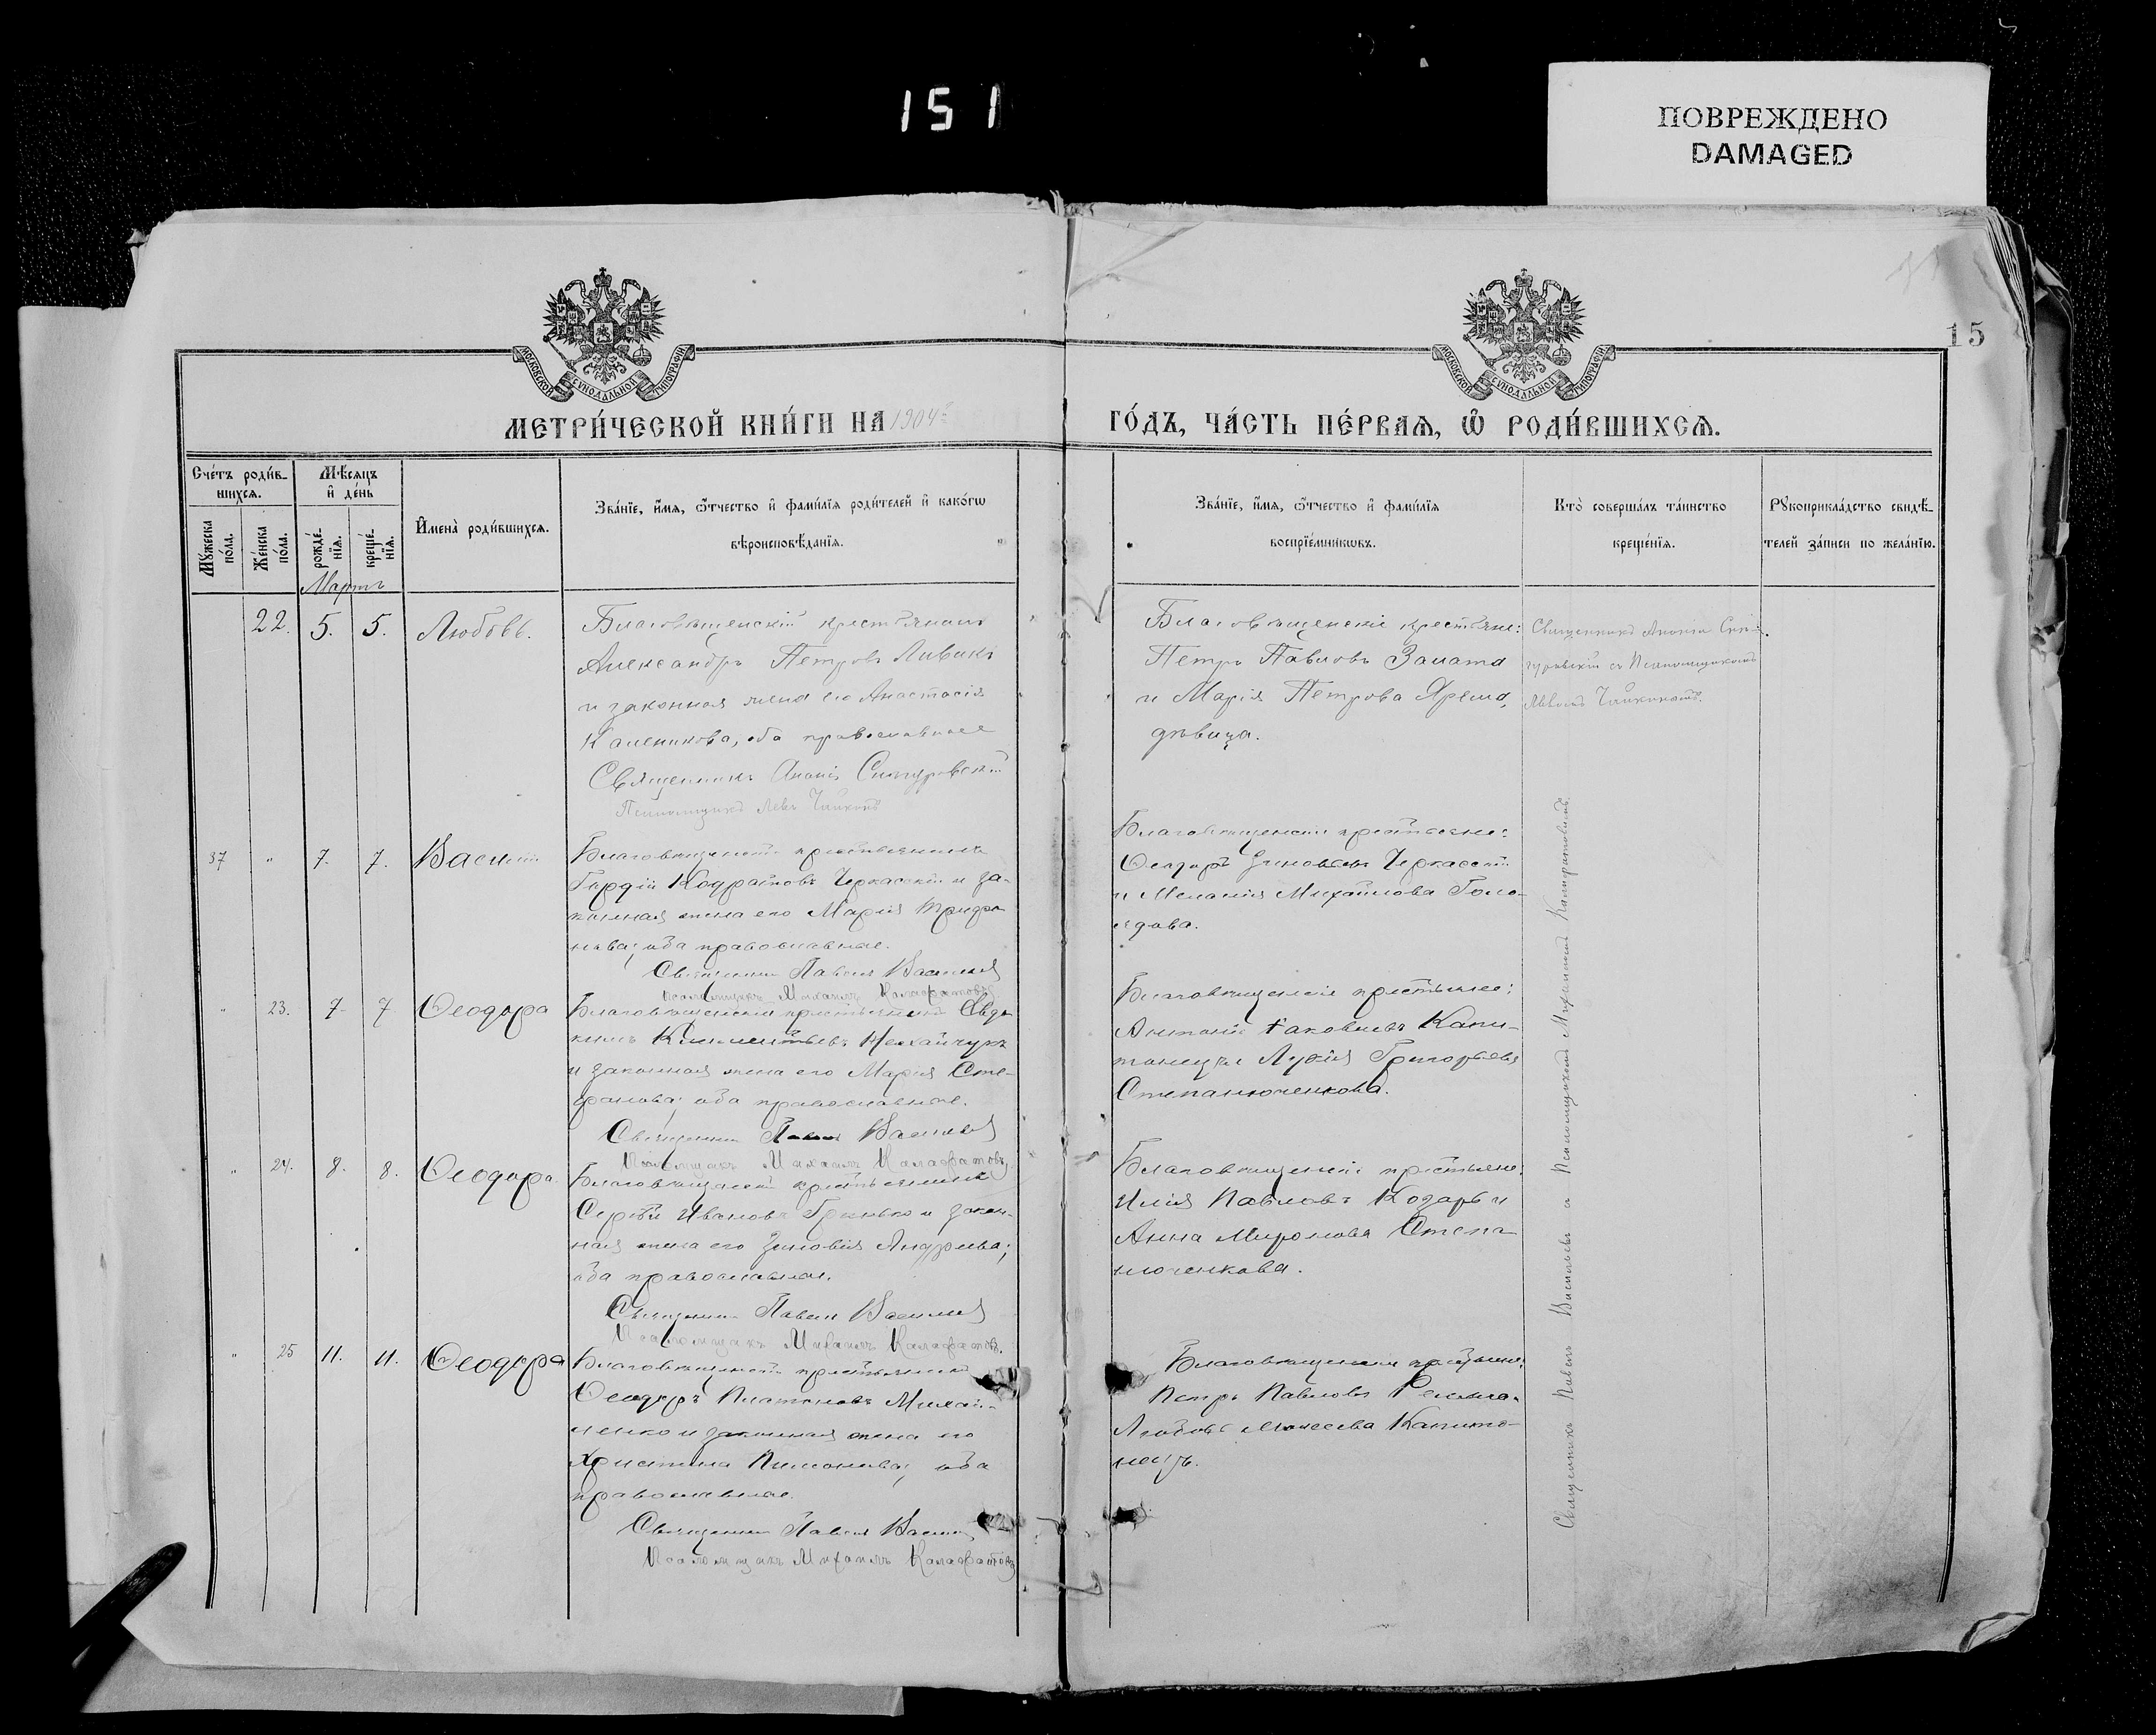 151
ПОВРЕЖДЕНО
DAMAGED
15
МОСКОВСКОЙ СѴНОДАЛЬНОЙ ТИПОГРАФІИ
МОСКОВСКОЙ СѴНОДАЛЬНОЙ ТИПОГРАФІИ
МЕТРИ́ЧЕСКОЙ КНИ́ГИ НА 1904 г
ГО́ДЪ, ЧА́СТЬ ПЕ́РВАѦ, Ѽ РОДИ́ВШИХСѦ.
Сче́тъ роди́в-
шихсѧ.
Мѣ́сѧцъ
и҆ де́нь
Мꙋ́жеска по́ла.
Же́нска по́ла.
рожде́-нїѧ.
креще́-нїѧ.
И҆мена̀ роди́вшихсѧ.
Зва́нїе, и҆́мѧ, ѻ҆́тчество и҆ фами́лїѧ роди́телей и҆ како́гѡ
вѣроисповѣ́данїѧ.
Зва́нїе, и҆́мѧ, ѻ҆́тчество и҆ фами́лїѧ
воспрїе́мникѡвъ.
Кто̀ соверша́лъ та́инство
креще́нїѧ.
Рꙋкоприкла́дство свидѣ́-
телей за́писи по жела́нїю.
Мартъ
22. 5. 5. Любовь.
Благовѣщенскій крестьянинъ
Александръ Петровъ Ливакъ
и законная жена его Анастасія
Каленикова, оба православные
Священникъ Ананія
Псаломщикъ Левъ
Благовѣщенскіе крестьяне:
Петръ Павловъ Замата
и Марія Петрова Ярема,
дѣвица.
Священникъ Ананія
съ Псаломщикомъ
Львомъ
37 " 7. 7. Василій
Благовѣщенскій крестьянинъ
Гордій Кодратовъ Черкасскій и за-
конная жена его Марія
нова; оба православные.
Священникъ Павелъ Васильевъ
Псаломщикъ Михаилъ Калафатовъ
Благовѣщенскіе крестьяне:
Ѳеодоръ Зиновьевъ Черкасскій
и Меланія Михайлова Голо-
" 23. 7. 7 Ѳеодора
Благовѣщенскій крестьянинъ Евдо-
кимъ Климентьевъ
и законная жена его Марія Сте-
фанова; оба православные.
Священникъ Павелъ Васильевъ
Псаломщикъ Михаилъ Калафатовъ
Благовѣщенскіе крестьяне:
Антоній Іаковлевъ Капи-
танецъ и Лукія Григорьева
Степанюченкова.
" 24. 8. 8. Ѳеодора
Благовѣщенскій крестьянинъ
Сергій Ивановъ Гринько и закон-
ная жена его Зиновія Андреева;
оба православные.
Священникъ Павелъ Васильевъ
Псаломщикъ Михаилъ Калафатовъ.
Благовѣщенскіе крестьяне:
Илія Павловъ Козаръ и
Анна Миронова Степа-
нюченкова.
" 25 11. 11. Ѳеодора
Благовѣщенскій крестьянинъ
Ѳеодоръ Платоновъ Михай-
ленко и законная жена его
Христина Пимонова; оба
православные.
Священникъ Павелъ Васильевъ
Псаломщикъ Михаилъ Калафатовъ
Благовѣщенскіе крестьяне:
Петръ Павловъ
Любовь Моисеева Капита-
нецъ.
Священникъ Павелъ Васильевъ съ Псаломщикомъ Михаиломъ Калафатовымъ